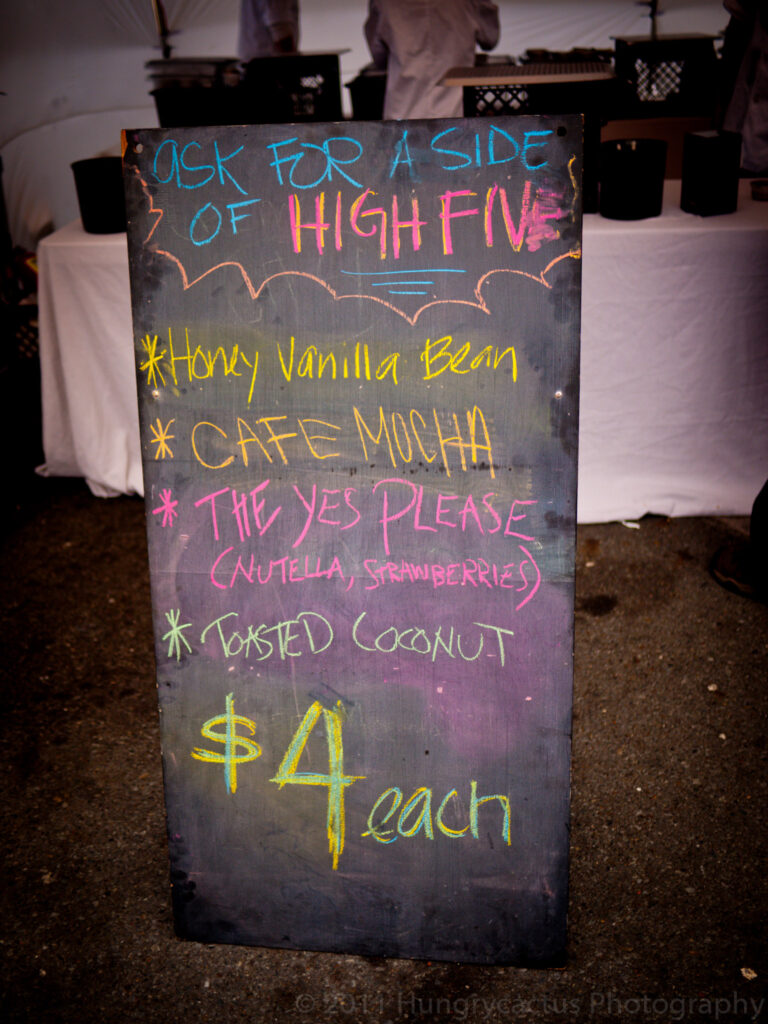 ASK FOR A SIDE
OF HIGH FIVE
* Honey Vanilla Bean
* CAFE MOCHA
* THE YES PLEASE
(NUTELLA, STRAWBERRIES)
* TOASTED COCONUT
$4 each
© 2011 Hungrycactus Photography